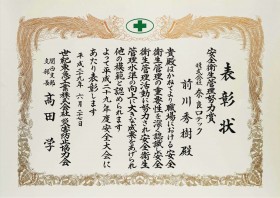 表彰状
安全衛生管理努力賞
株式会社 奈良ロテック
前川秀樹殿
貴殿はかねてより職場における安全
衛生管理の重要性を深く認識し安全
衛生管理活動に努力され安全衛生
管理水準の向上に大きな成果をあげられ
他の模範と認められます
よって平成二十九年度安全大会に
あたり表彰します
平成二十九年 六月二十七日
世紀東急工業株式会社災害防止協力会
関西支部
支部長 高田 学